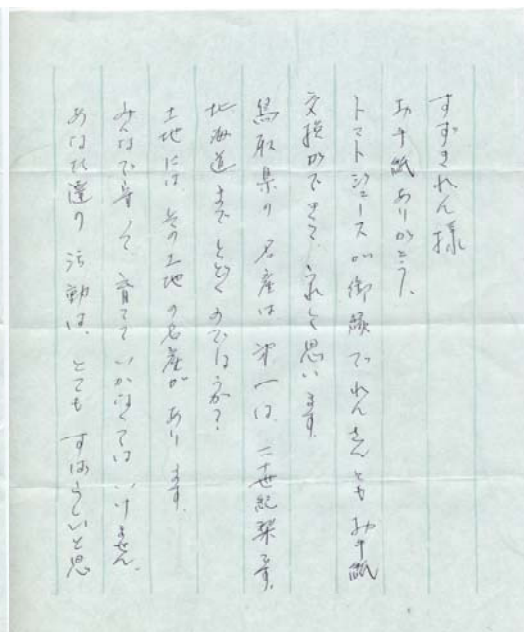 すずきれん様
お手紙ありがとう。
トマトジュースが御縁でれんさんともお手紙
交換ができて、うれしく思います。
鳥取県の名産は第一は、二十世紀梨です。
北海道までとどくのでは
土地には、その土地の名産があります。
みんなで育てていかなくてはいけません。
あなた達の活動は、とてもすばらしいと思